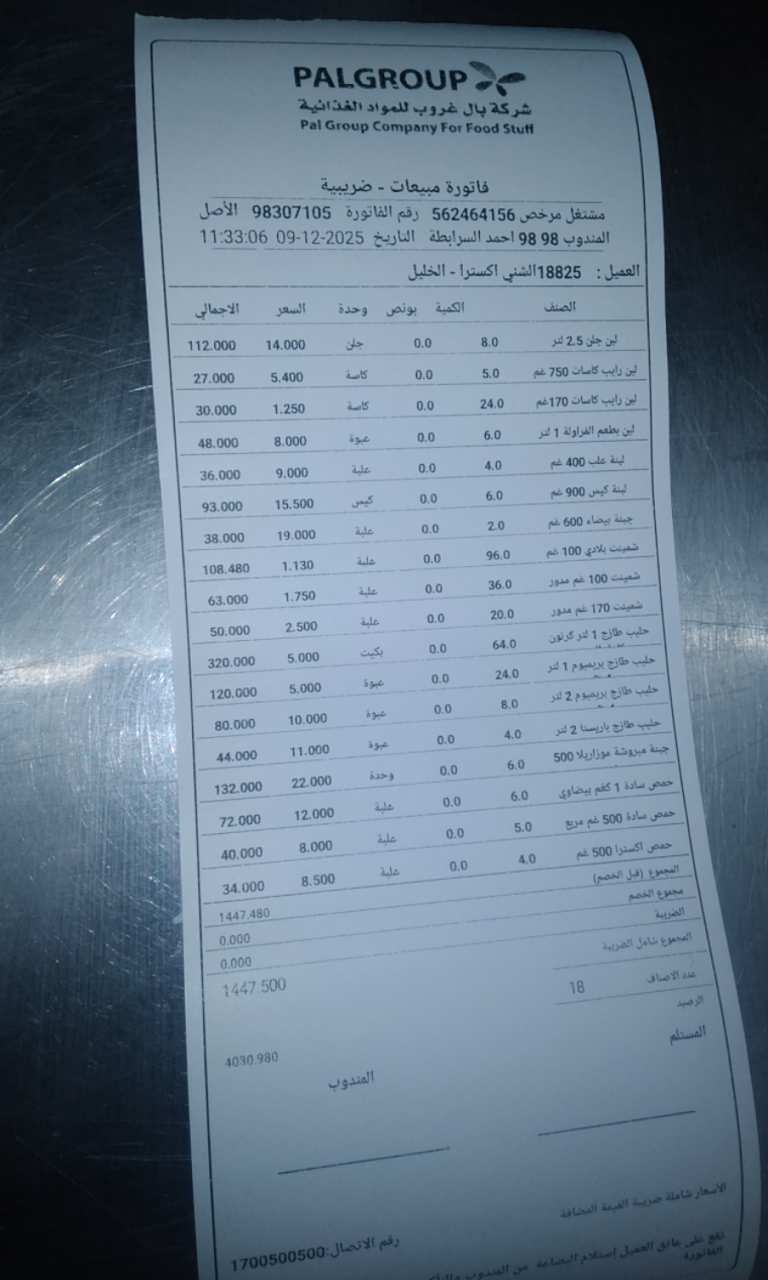 PALGROUP
شركة بال غروب للمواد الغذائية
Pal Group Company For Food Stuff
فاتورة مبيعات - ضريبية
مشتغل مرخص 562464156 رقم الفاتورة 98307105 الأصل
المندوب 98 98 احمد السرابطة التاريخ 09-12-2025 11:33:06
العميل : 18825الشني اكسترا - الخليل
الصنف الكمية بونص وحدة السعر الاجمالي
لبن جلن 2.5 لتر 8.0 0.0 جلن 14.000 112.000
لبن رايب كاسات 750 غم 5.0 0.0 كاسة 5.400 27.000
لبن رايب كاسات 170غم 24.0 0.0 كاسة 1.250 30.000
لبن بطعم الفراولة 1 لتر 6.0 0.0 عبوة 8.000 48.000
لبنة علب 400 غم 4.0 0.0 علبة 9.000 36.000
لبنة كيس 900 غم 6.0 0.0 كيس 15.500 93.000
جبنة بيضاء 600 غم 2.0 0.0 علبة 19.000 38.000
شمينت بلادي 100 غم 96.0 0.0 علبة 1.130 108.480
شمينت 100 غم مدور 36.0 0.0 علبة 1.750 63.000
شمينت 170 غم مدور 20.0 0.0 علبة 2.500 50.000
حليب طازج 1 لتر كرتون 64.0 0.0 بكيت 5.000 320.000
حليب طازج بريميوم 1 لتر 24.0 0.0 عبوة 5.000 120.000
حليب طازج بريميوم 2 لتر 8.0 0.0 عبوة 10.000 80.000
حليب طازج باريستا 2 لتر 4.0 0.0 عبوة 11.000 44.000
جبنة مبروشة موزاريلا 500 6.0 0.0 وحدة 22.000 132.000
حمص سادة 1 كغم بيضاوي 6.0 0.0 علبة 12.000 72.000
حمص سادة 500 غم مربع 5.0 0.0 علبة 8.000 40.000
حمص اكسترا 500 غم 4.0 0.0 علبة 8.500 34.000
المجموع (قبل الخصم) 1447.480
مجموع الخصم 0.000
الضريبة 0.000
المجموع شامل الضريبة 1447.500
عدد الاصناف 18
الرصيد 4030.980
المستلم المندوب
الأسعار شاملة ضريبة القيمة المضافة
رقم الاتصال:1700500500
تقع على عاتق العميل إستلام البضاعة من المندوب
الفاتورة